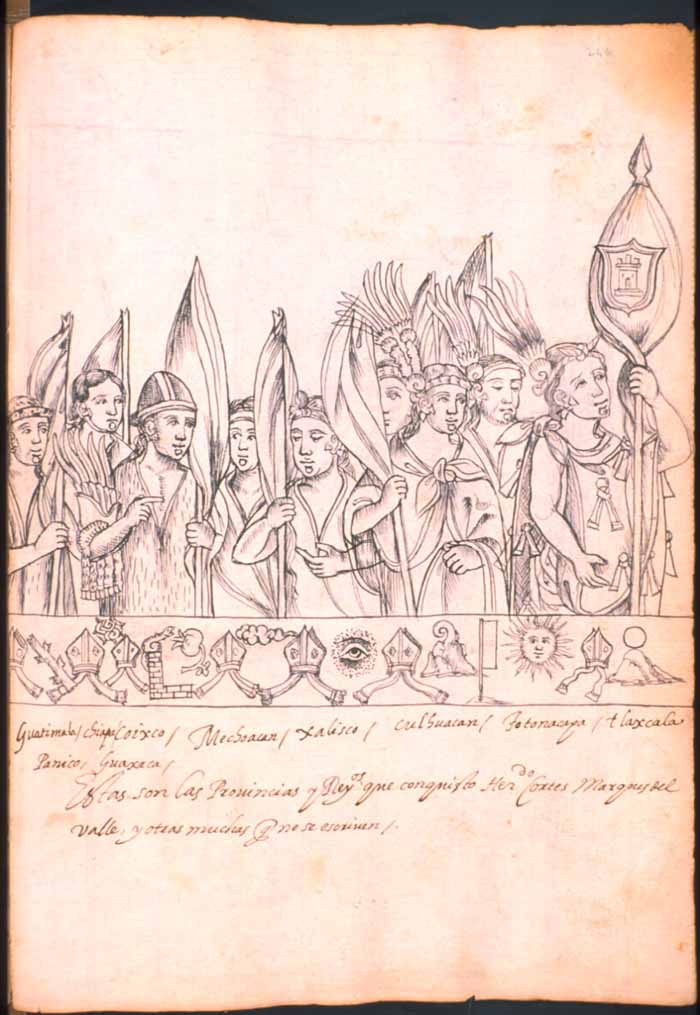 Guatimala / chiapa / Coixco / Mechoacan / xalisco / culhuacan / Totonacapa / tlaxcala
Panico / Guaxaca /
Estas son las Prouincias y Reyos que conquisto Herdo Cortes Marques del
Valle, y otras muchas q no se escriuen /.